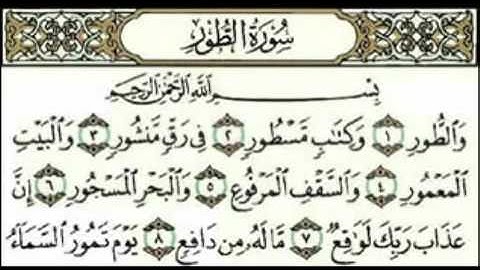 سُورَةُ الطُّورِ
بِسْمِ اللَّهِ الرَّحْمَٰنِ الرَّحِيمِ
وَالطُّورِ ١ وَكِتَابٍ مَّسْطُورٍ ٢ فِي رَقٍّ مَّنشُورٍ ٣ وَالْبَيْتِ
الْمَعْمُورِ ٤ وَالسَّقْفِ الْمَرْفُوعِ ٥ وَالْبَحْرِ الْمَسْجُورِ ٦ إِنَّ
عَذَابَ رَبِّكَ لَوَاقِعٌ ٧ مَّا لَهُ مِن دَافِعٍ ٨ يَوْمَ تَمُورُ السَّمَاءُ